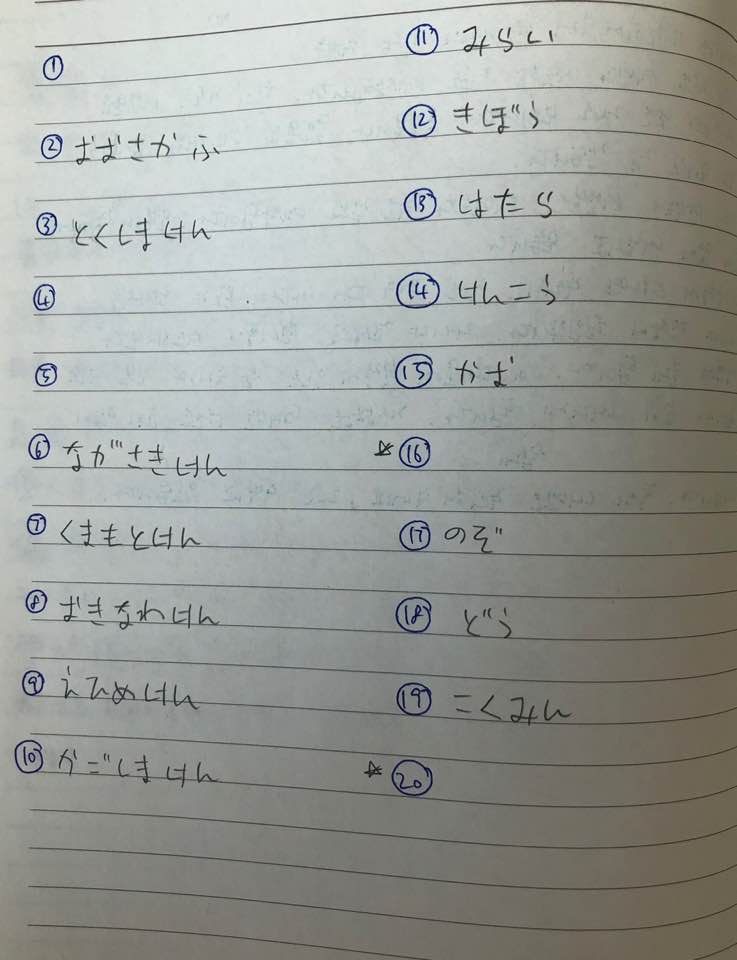 ①
② おおさかふ
③ とくしまけん
④
⑤
⑥ ながさきけん
⑦ くまもとけん
⑧ おきなわけん
⑨ えひめけん
⑩ かごしまけん
⑪ みらい
⑫ きぼう
⑬ はたら
⑭ けんこう
⑮ かお
☆ ⑯
⑰ のぞ
⑱ どう
⑲ こくみん
☆ ⑳